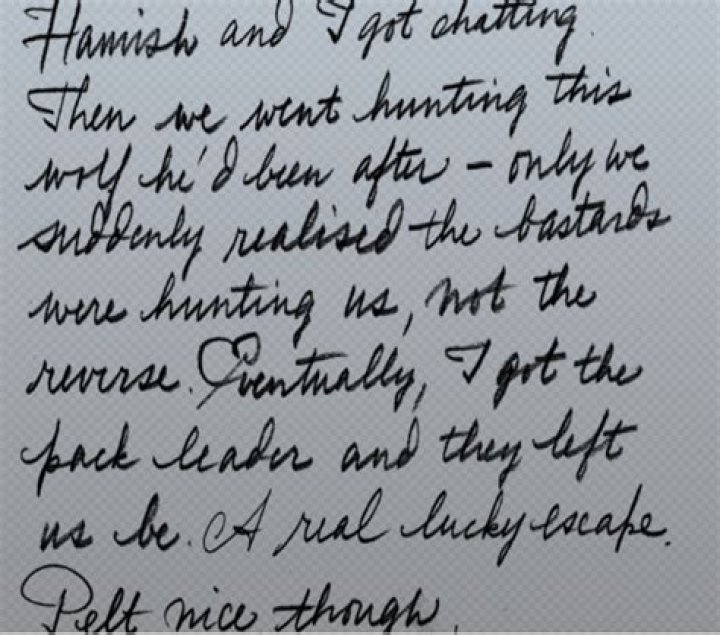 Hamish and I got chatting.
Then we went hunting this
wolf he'd been after - only we
suddenly realised the bastards
were hunting us, not the
reverse. Eventually, I got the
pack leader and they left
us be. A real lucky escape.
Pelt nice though.